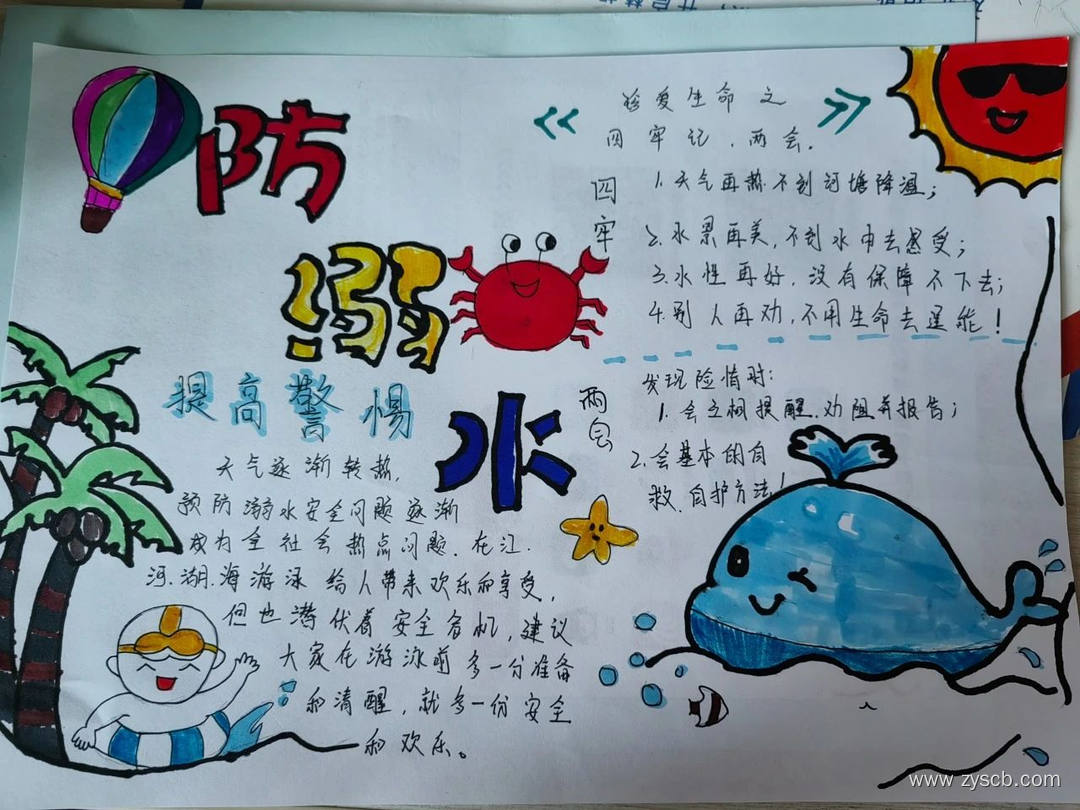 防
溺
水
提高警惕
天气逐渐转热,
预防溺水安全问题逐渐
成为全社会热点问题. 在江.
河.湖.海游泳 给人带来欢乐和享受,
但也潜伏着安全危机,建议
大家在游泳前多一分准备
和清醒,就多一份安全
和欢乐。
《 珍爱生命之 》
四牢记.两会.
四牢
1.天气再热.不到河塘降温;
2.水景再美,不到水中去感受;
3.水性再好,没有保障不下去;
4.别人再劝,不用生命去逞能!
两会
发现险情时:
1.会互相提醒.劝阻并报告;
2.会基本的自
救.自护方法!
www.zyscb.com